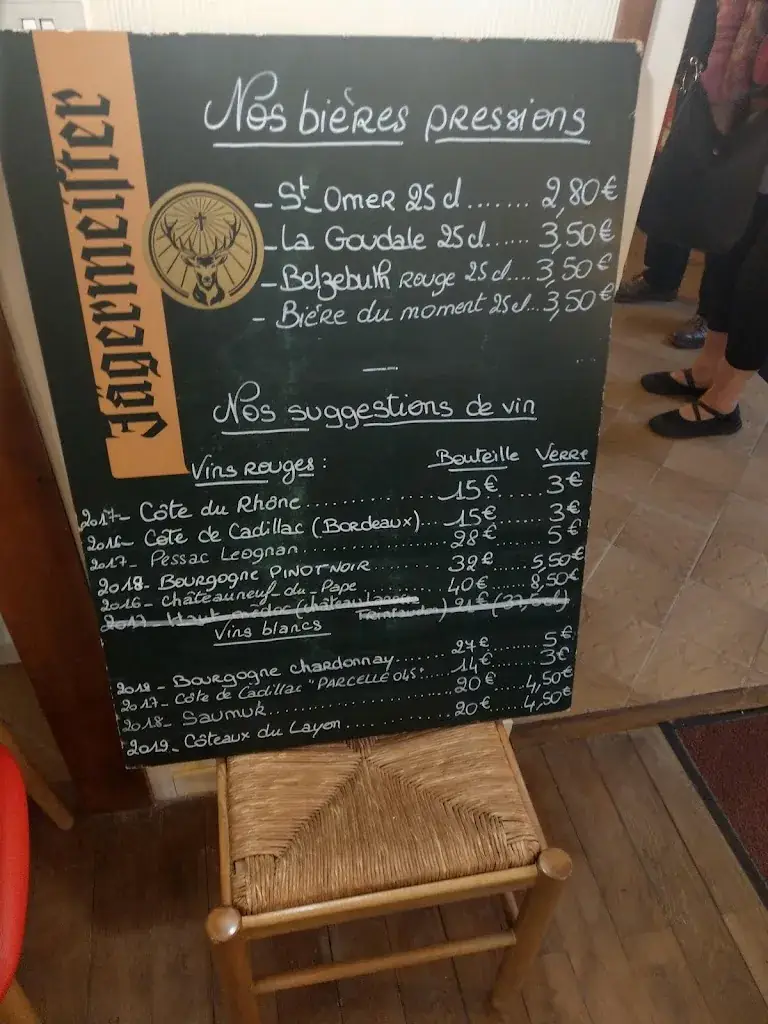 Jägermeister
Nos bières pressions
- St-Omer 25cl....... 2,80€
- La Goudale 25cl...... 3,50€
- Belzebuth Rouge 25cl.... 3,50€
- Bière du moment 25cl... 3,50€
Nos suggestions de vin
Vins rouges : Bouteille Verre
2017- Côte du Rhône 15€ 3€
2016- Côte de Cadillac (Bordeaux) 15€ 3€
2017- Pessac Leognan 28€ 5€
2018- Bourgogne PINOT NOIR 32€ 5,50€
2016- Châteauneuf-du-Pape 40€ 8,50€
Haut-médoc (château
Vins blancs
Bourgogne chardonnay 27€ 5€
2017- Côte de Cadillac "PARCELLE 045" 14€ 3€
2018- Saumur 20€ 4,50€
2019- Côteaux du Layon 20€ 4,50€